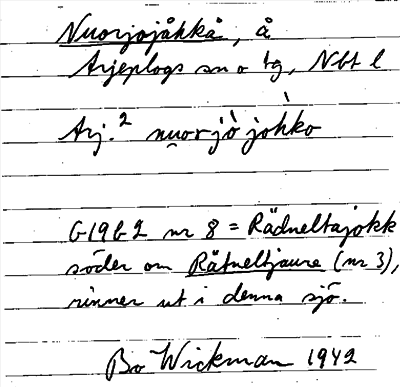 Nuorjojåhkå, å
Arjeplogs sn o tg, Nbt l
Arj.² nu̯orjò jòhko
G19b2 nr 8 = Rädneltajokk
söder om Rätneltjaure (nr 3),
rinner ut i denna sjö.
Bo Wickman 1942